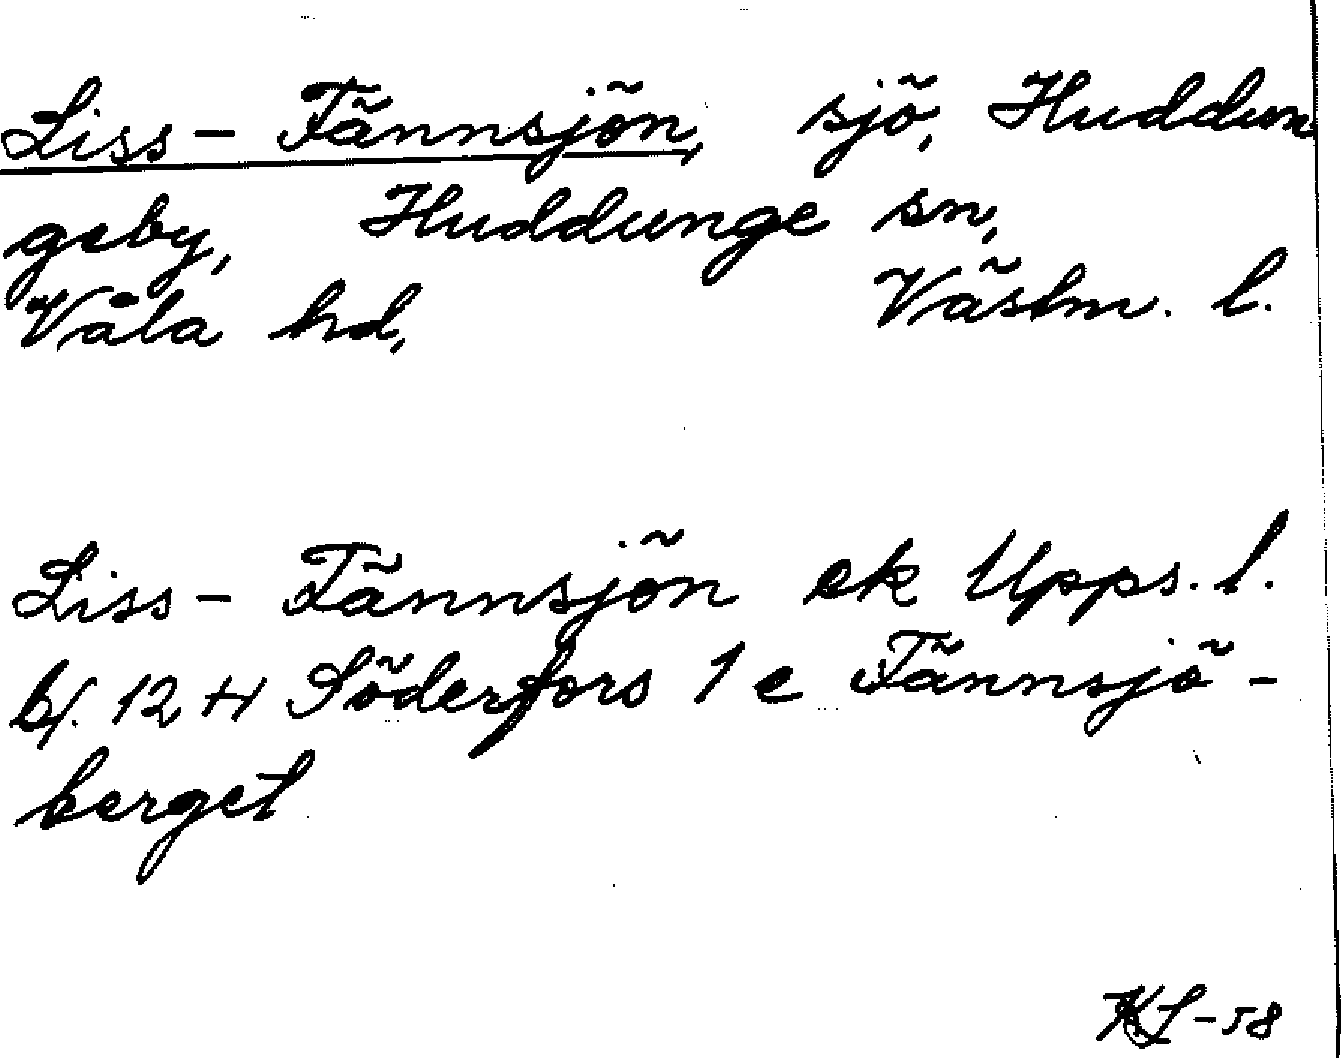 Liss-Tännsjön, sjö, Huddun
geby, Huddunge sn,
Våla hd, Västm. l.
Liss-Tännsjön ek Upps. l.
bl. 12 H Söderfors 1 e Tännsjö-
berget
KL-58